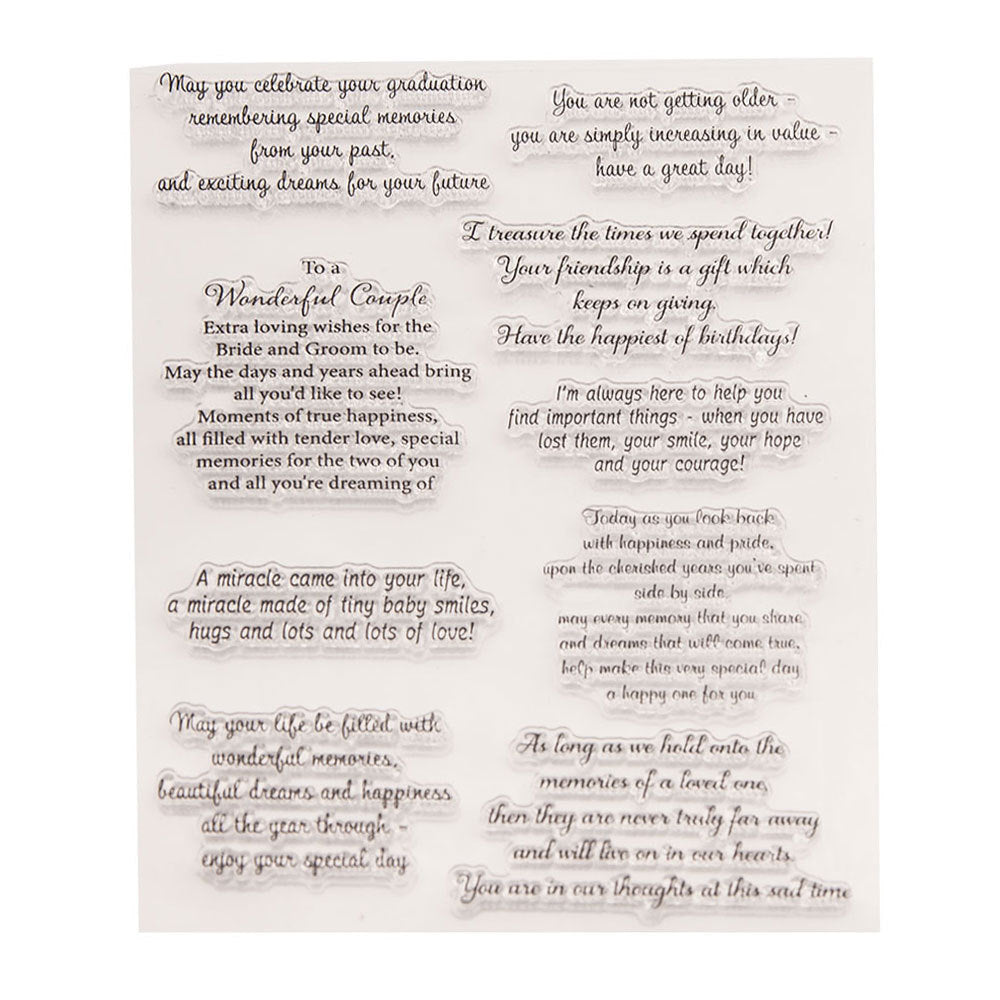 May you celebrate your graduation
remembering special memories
from your past,
and exciting dreams for your future
To a
Wonderful Couple
Extra loving wishes for the
Bride and Groom to be.
May the days and years ahead bring
all you'd like to see!
Moments of true happiness,
all filled with tender love, special
memories for the two of you
and all you're dreaming of
A miracle came into your life,
a miracle made of tiny baby smiles,
hugs and lots and lots of love!
May your life be filled with
wonderful memories,
beautiful dreams and happiness
all the year through -
enjoy your special day
You are not getting older -
you are simply increasing in value -
have a great day!
I treasure the times we spend together!
Your friendship is a gift which
keeps on giving.
Have the happiest of birthdays!
I'm always here to help you
find important things - when you have
lost them, your smile, your hope
and your courage!
Today as you look back
with happiness and pride,
upon the cherished years you've spent
side by side,
may every memory that you share
and dreams that will come true,
help make this very special day
a happy one for you
As long as we hold onto the
memories of a loved one,
then they are never truly far away
and will live on in our hearts.
You are in our thoughts at this sad time